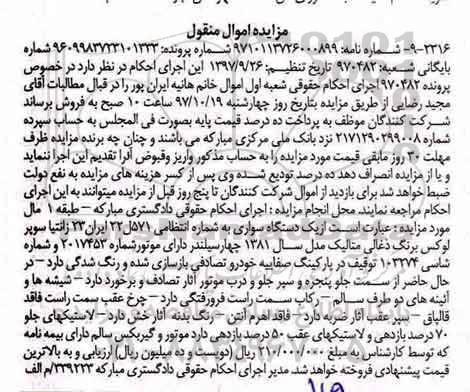 مزایده اموال منقول
۲۳۱۶-۹- شماره نامه: ۹۷۱۰۱۱۳۷۲۶۰۰۰۸۹۹ شماره پرونده: ۹۶۰۹۹۸۳۷۲۳۱۰۱۲۳۳ شماره
بایگانی شعبه: ۹۷۰۴۸۲ تاریخ تنظیم: ۱۳۹۷/۹/۲۶ این اجرای احکام در نظر دارد در خصوص
پرونده ۹۷۰۴۸۲ اجرای احکام حقوقی شعبه اول اموال خانم هانیه ایران پور را در قبال مطالبات آقای
مجید رضایی از طریق مزایده بتاریخ روز چهارشنبه ۹۷/۱۰/۱۹ ساعت ۱۰ صبح به فروش برساند
شرکت کنندگان موظف به پرداخت ده درصد قیمت پایه بصورت فی المجلس به حساب سپرده
۲۱۷۱۲۹۰۲۹۹۰۰۸ نزد بانک ملی مرکزی مبارکه می باشند و چنان چه برنده مزایده ظرف
مهلت ۳۰ روز مابقی قیمت مورد مزایده را به حساب مذکور واریز وقبوض آنرا تقدیم این اجرا ننماید
و یا از مزایده انصراف دهد ده درصد تودیع شده وی پس از کسر هزینه های مزایده به نفع دولت
ضبط خواهد شد برای بازدید از اموال شرکت کنندگان تا پنج روز قبل از مزایده میتوانند به این اجرای
احکام مراجعه نمایند. محل انجام مزایده : اجرای احکام حقوقی دادگستری مبارکه – طبقه ۱ مال
مورد مزایده : عبارت است از یک دستگاه سواری به شماره انتظامی ۵۷۱ل۲۲ ایران ۲۳ زانتیا سوپر
لوکس برنگ ذغالی متالیک مدل سال ۱۳۸۱ چهارسیلندر دارای موتورشماره ۲۰۱۷۴۵۳ و شماره
شاسی ۱۰۳۲۷۴ توقیف در پارکینگ صفاییه خودرو تصادفی بازسازی شده و رنگ شدگی دارد – در
حال حاضر از سمت جلو پنجره و سپر جلو و درب موتور آثار تصادف و برخورد دارد – شیشه ها و
آئینه های دو طرف سالم – رکاب سمت راست فرورفتگی دارد – چرخ عقب سمت راست فاقد
قالپاق – سپر عقب آثار ضربه دارد – فاقد اهرم آنتن – رنگ بدنه آثار خش دارد – لاستیکهای جلو
۷۰ درصد بازدهی و لاستیکهای عقب ۵۰ درصد بازدهی دارد موتور و گیربکس سالم دارای بیمه نامه
که توسط کارشناس به مبلغ ۲۱۰/۰۰۰/۰۰۰ ریال (دویست و ده میلیون ریال) ارزیابی و به بالاترین
قیمت پیشنهادی فروخته خواهد شد. مدیر اجرای احکام حقوقی دادگستری مبارکه ۳۳۹۲۳۳/م الف